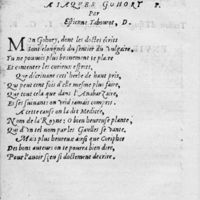 A IAQUES GOHORY P.
Par
Estienne Tabourot, D.
MOn Gohory, dont les doctes écrits
Sont élongnés du sentier du Vulgaire,
Tu ne pouvois plus bravement te plaire
Et contenter les curieux esprits,
Qu'écrivant ceci herbe de haut pris,
Qui peut cent fois plus d'effets, faire,
Que tout cela que dans l'
Et ses suivans on vrid jamais compris.
A cette cause on la dit Medicée,
Nom de la Royne: O bien heureuse plante,
Qui d'un tel nom par les Gaulles se vante,
Mais plus heureuse ainsi que
Des bons auteurs on te pourra bien dire,
Pour l'autor si docte